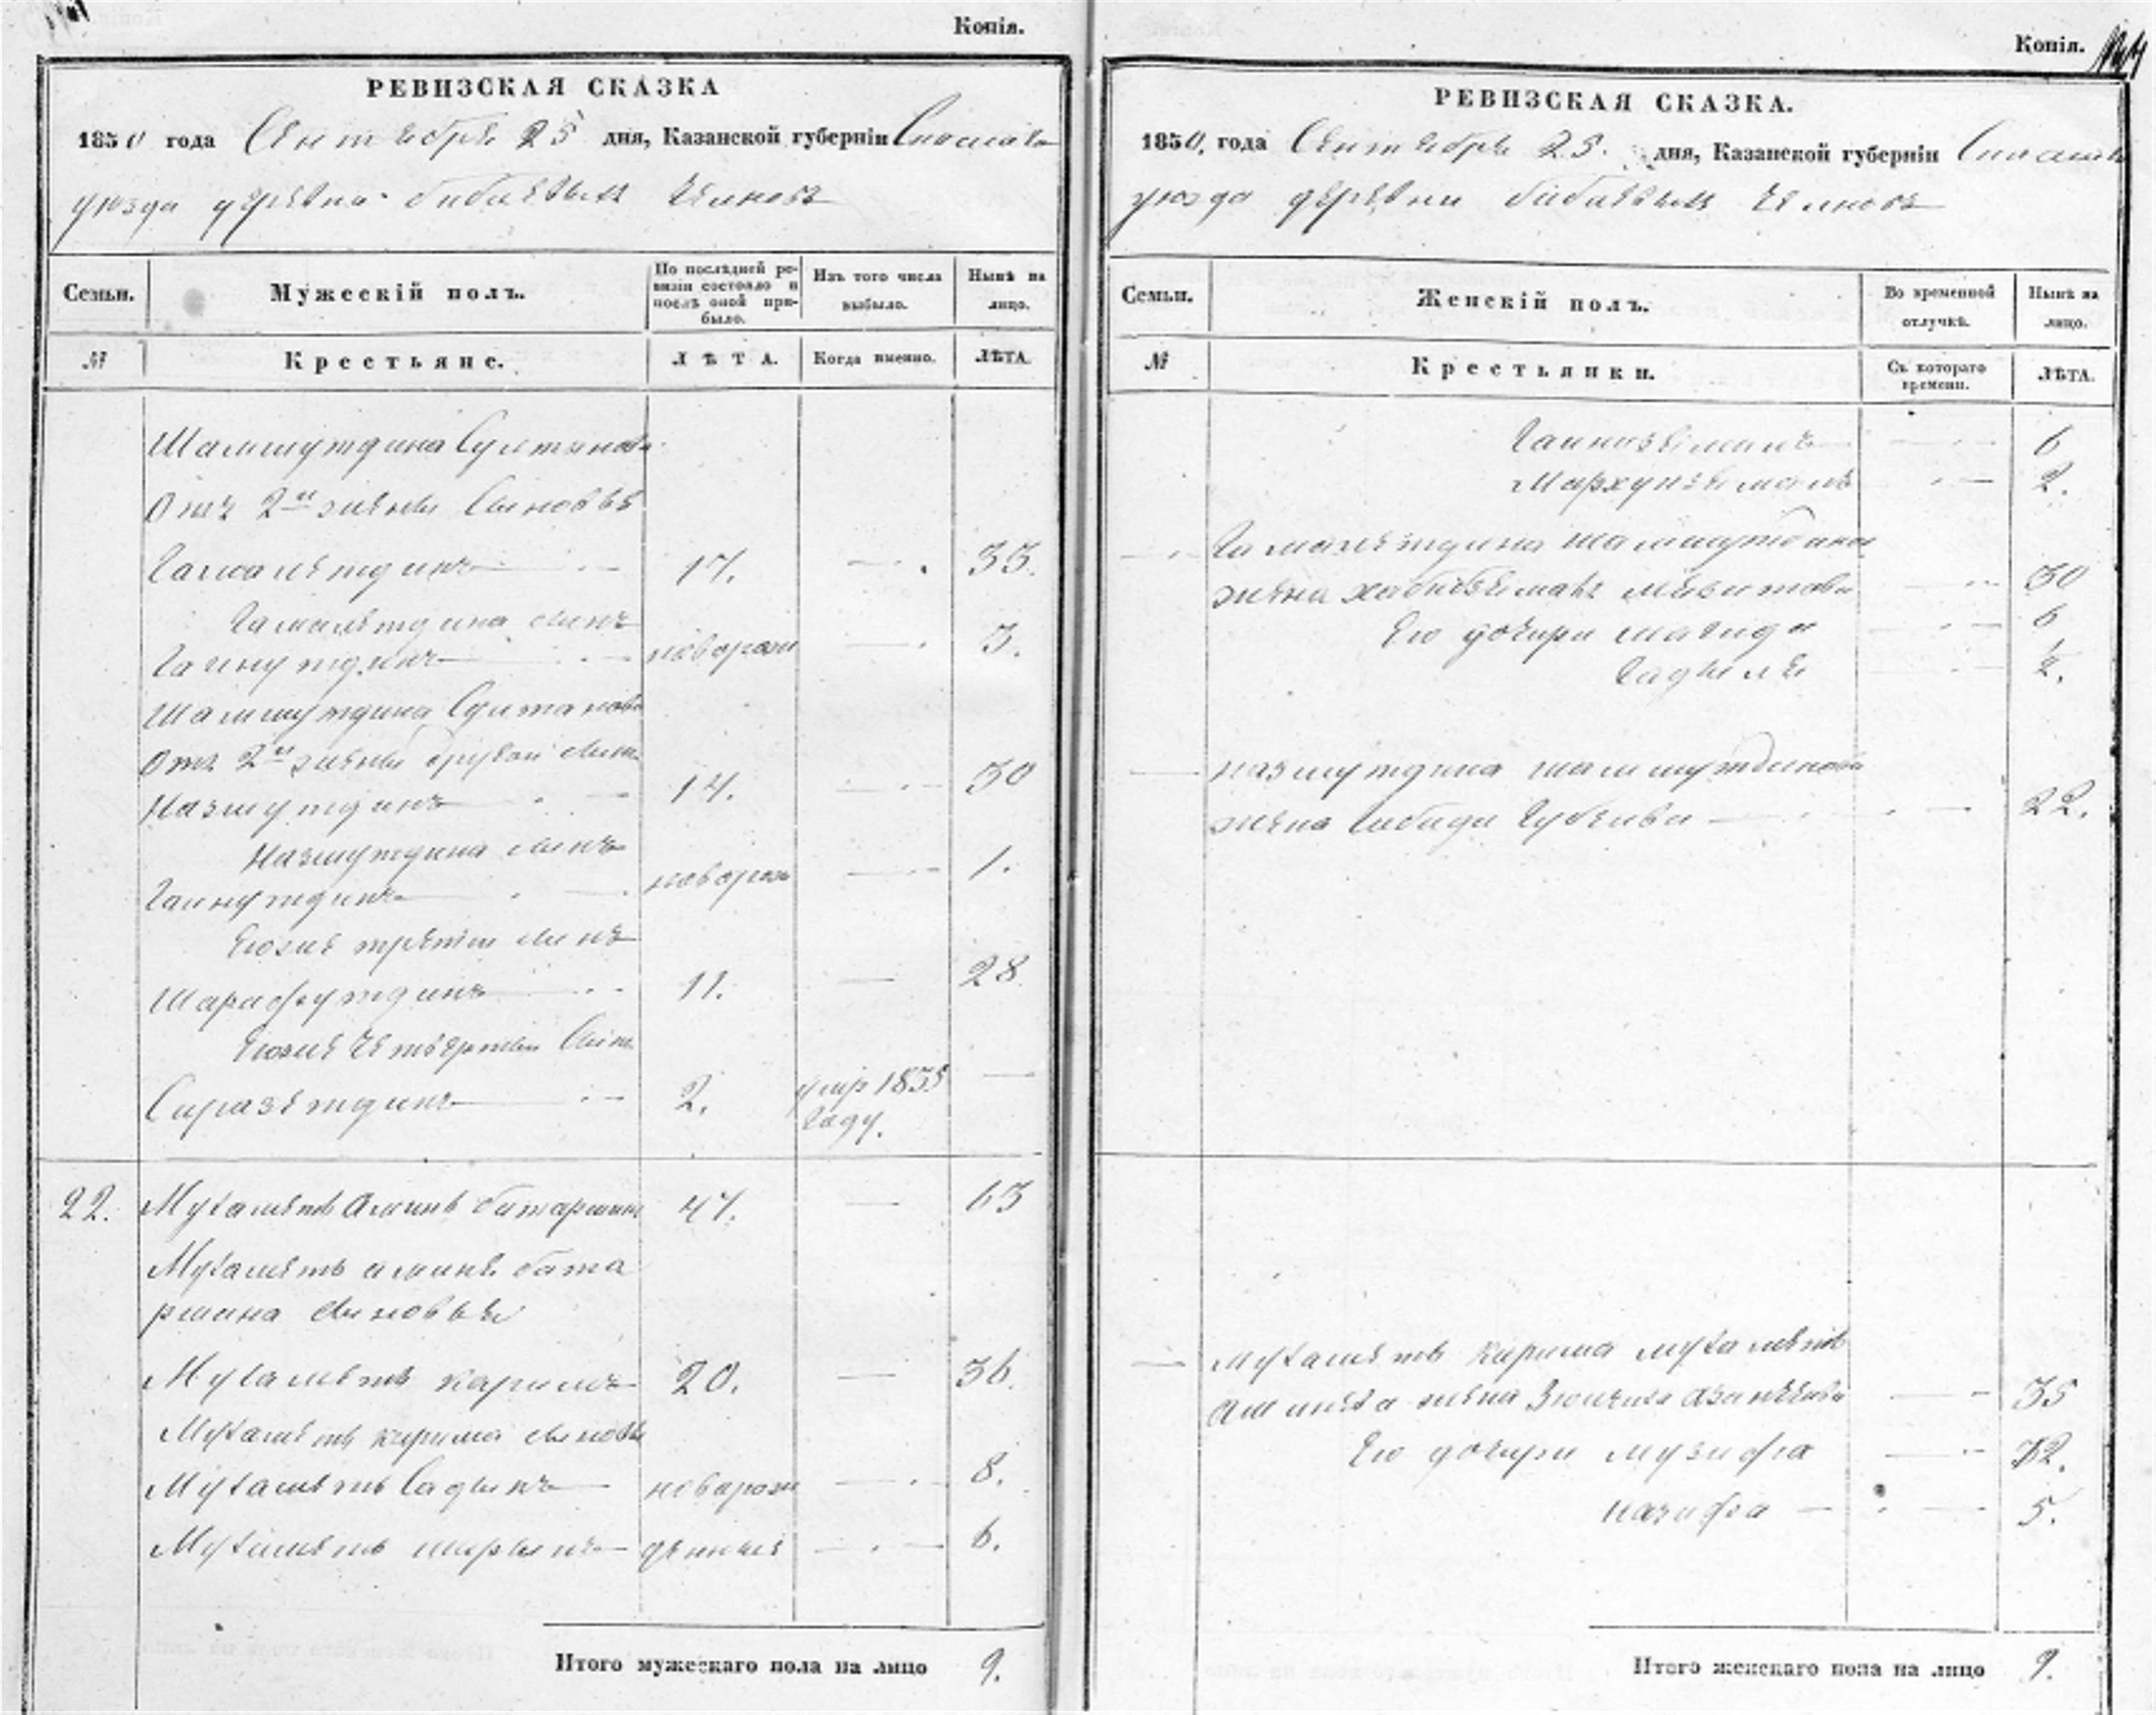 Копія.
РЕВИЗСКАЯ СКАЗКА
1850 года Сентебре 25 дня, Казанской губерніи Спаскаго
уезда деревни бибаевыхъ Челновъ
Семьи.
Мужескій полъ.
По послѣдней ревизіи состояло и послѣ оной прибыло.
Изъ того числа выбыло.
Нынѣ на лицо.
№
Крестьяне.
ЛѢТА.
Когда именно.
ЛѢТА.
Шамшутдина Султанова
Отъ 2й жены Сыновье
Гамалетдинъ 17. — 33.
Гамалетдина сынъ
Гайнутдинъ новорож — 3.
Шамшутдина Султанова
Отъ 2й жены другой сынъ
Назмутдинъ 14. — 30
Назмутдина сынъ
Гайнутдинъ новорож — 1.
Егоже третій сынъ
Шарафутдинъ 11. — 28
Егоже Четвертый Сынъ
Сиразетдинъ 2. умр 1835 Году. —
22. Мухаметъ Аминъ батаршинъ 47. — 63
Мухаметъ аминъ бата
ршина сыновьи
Мухаметъ каримъ 20. — 36.
Мухаметъ карима сыновьи
Мухаметъ Садыкъ новорож — 8.
Мухаметъ шарыпъ денные — 6.
Итого мужескаго пола на лицо 9.
Копія.
РЕВИЗСКАЯ СКАЗКА.
1850. года Сентебре 25. дня, Казанской губерніи Спаскаго
уезда деревни бибаевыхъ Челновъ
Семьи.
Женскій полъ.
Во временной отлучкѣ.
Нынѣ на лицо.
№
Крестьянки.
Съ котораго времени.
ЛѢТА.
— 6
— 2.
— Гамалетдина шамшутдинова
жена хабибземалъ — 30
Его дочери магида — 6
— назмутдина шамшутдинова
жена — 22.
— Мухаметъ карима мухаметъ
аминева жена — 35
Его дочери музифа — 12.
назифа — 5.
Итого женскаго пола на лицо 9.